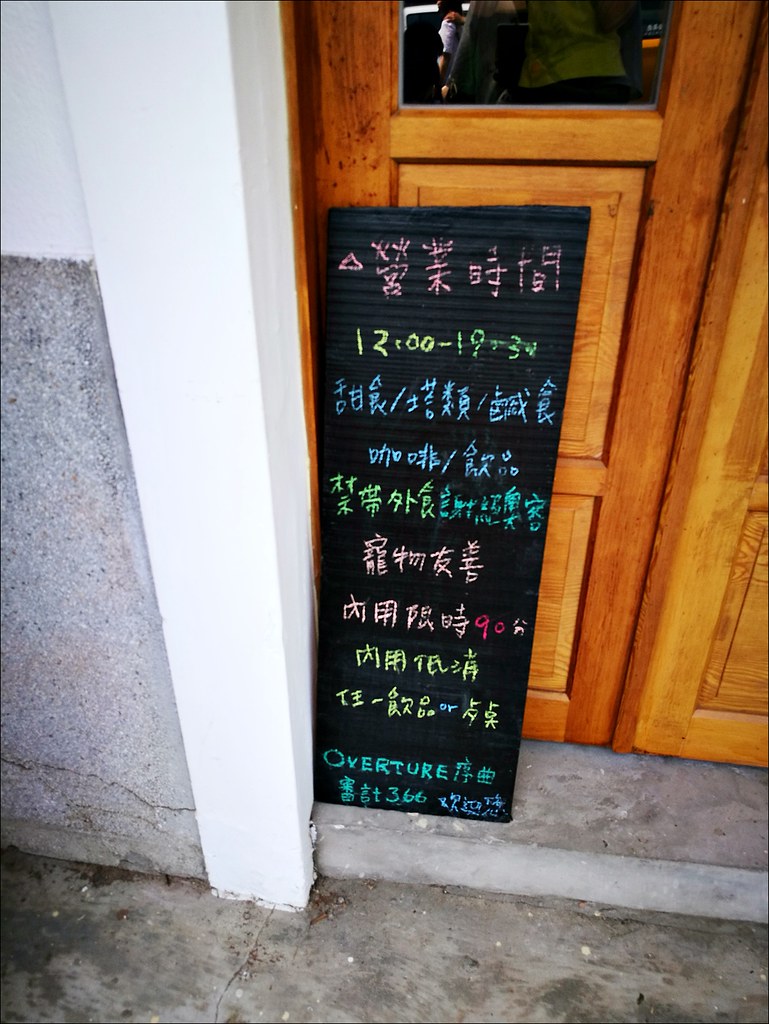 △營業時間
12:00-19:30
甜食/塔類/鹹食
咖啡/飲品
禁帶外食謝絕奧客
寵物友善
內用限時90分
內用低消
任一飲品or
OVERTURE 序曲
審計366 歡迎您